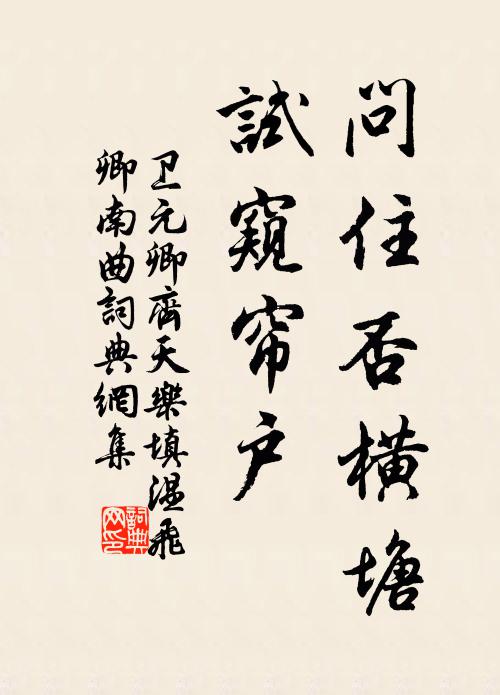 問住否橫塘
試窺帘户
卫元卿齊天樂填溫飛
卿南曲詞典網集
詞典网印